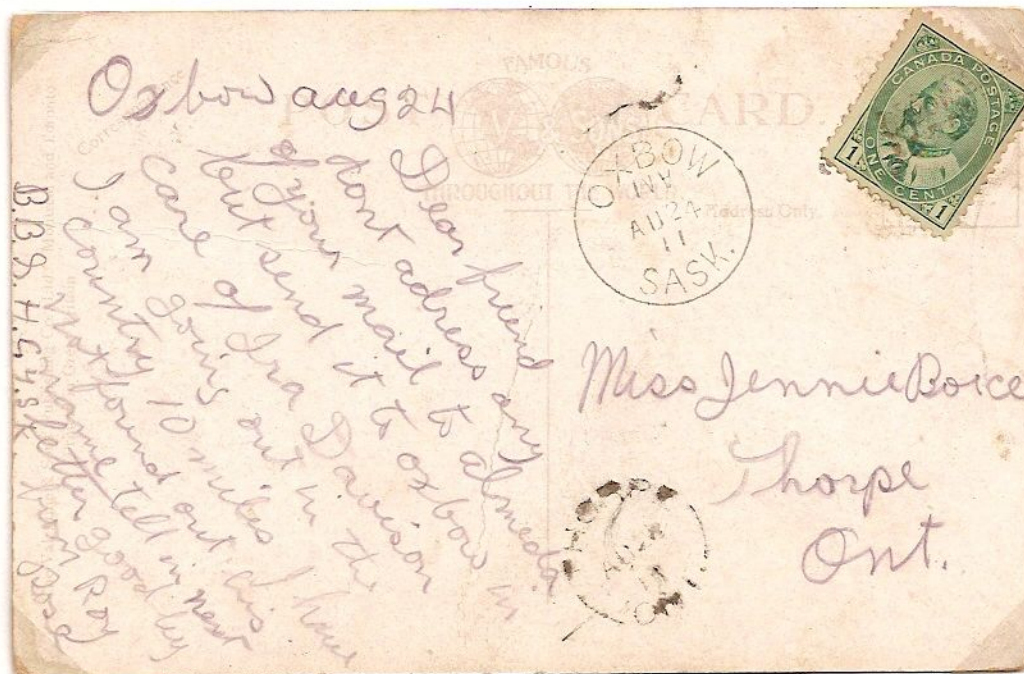 Oxbow aug 24
Dear friend
dont adress any
of your mail to almeda
but send it to oxbow in
care of Ira Davison
I am going out in the
country 10 miles I have
not found out his
name tell in next
letter good by
from Roy
B.B.S. H.G.Y.S.K.
FAMOUS
POST CARD.
THROUGHOUT THE WORLD
Address Only.
OXBOW
AU 24
11
SASK.
CANADA POSTAGE
ONE CENT
1 1
Miss Jennie Boice
Thorpe
Ont.
THORPE
AU
11
ONT